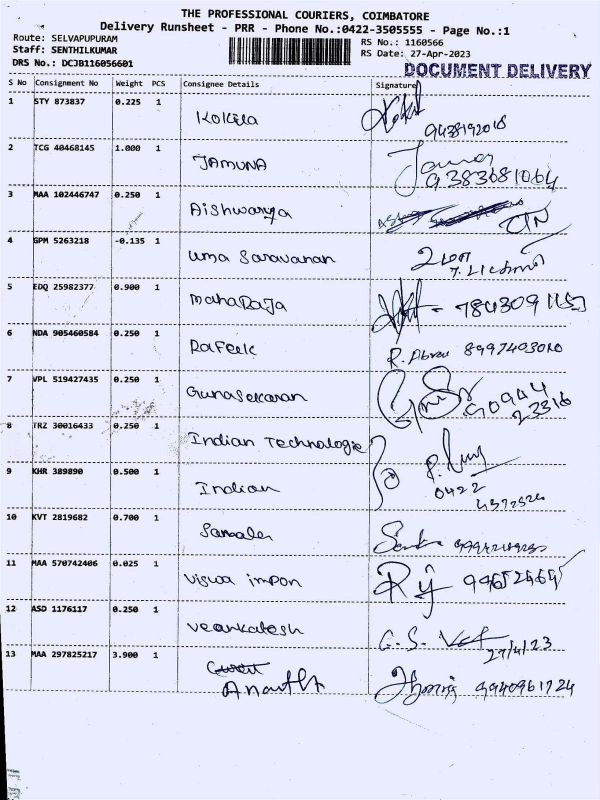 THE PROFESSIONAL COURIERS, COIMBATORE
Delivery Runsheet - PRR - Phone No.:0422-3505555 - Page No.:1
Route: SELVAPUPURAM RS No.: 1160566
Staff: SENTHILKUMAR RS Date: 27-Apr-2023
DRS No.: DCJB116056601 DOCUMENT DELIVERY
S No Consignment No Weight PCS Consignee Details Signature
1 STY 873837 0.225 1 Kokila
2 TCG 40468145 1.000 1 JAMUNA 9383681064
3 MAA 102446747 0.250 1 Aishwarya
4 GPM 5263218 -0.135 1 Uma Saravanan
5 EDQ 25982377 0.900 1 MahaRaja
6 NDA 905460584 0.250 1 Rafeek
7 VPL 519427435 0.250 1 Gunasekaran 90944
23316
8 TRZ 30016433 0.250 1 Indian Technologie
9 KHR 389890 0.500 1 Indian 0422
10 KVT 2819682 0.700 1
11 MAA 570742406 0.025 1 Viswa impon
12 ASD 1176117 0.250 1 Veankatesh G.S.
27/4/23
13 MAA 297825217 3.900 1 Ananth 9940961724